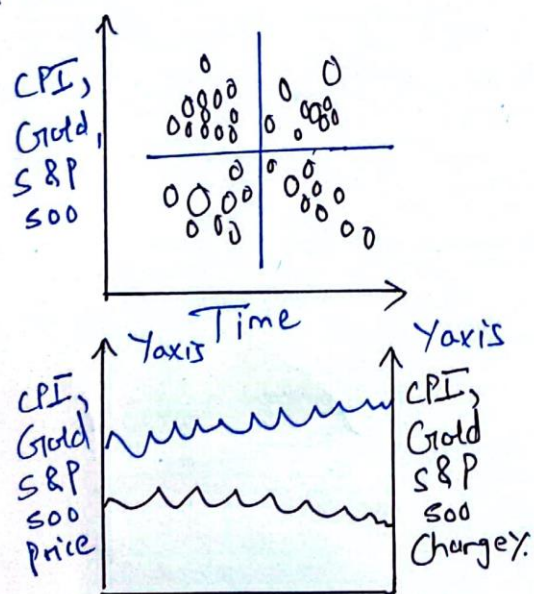 CPI,
Gold,
S&P
500
Time
Yaxis
Yaxis
CPI,
Gold
S&P
500
Price
CPI,
Gold
S&P
500
Change%